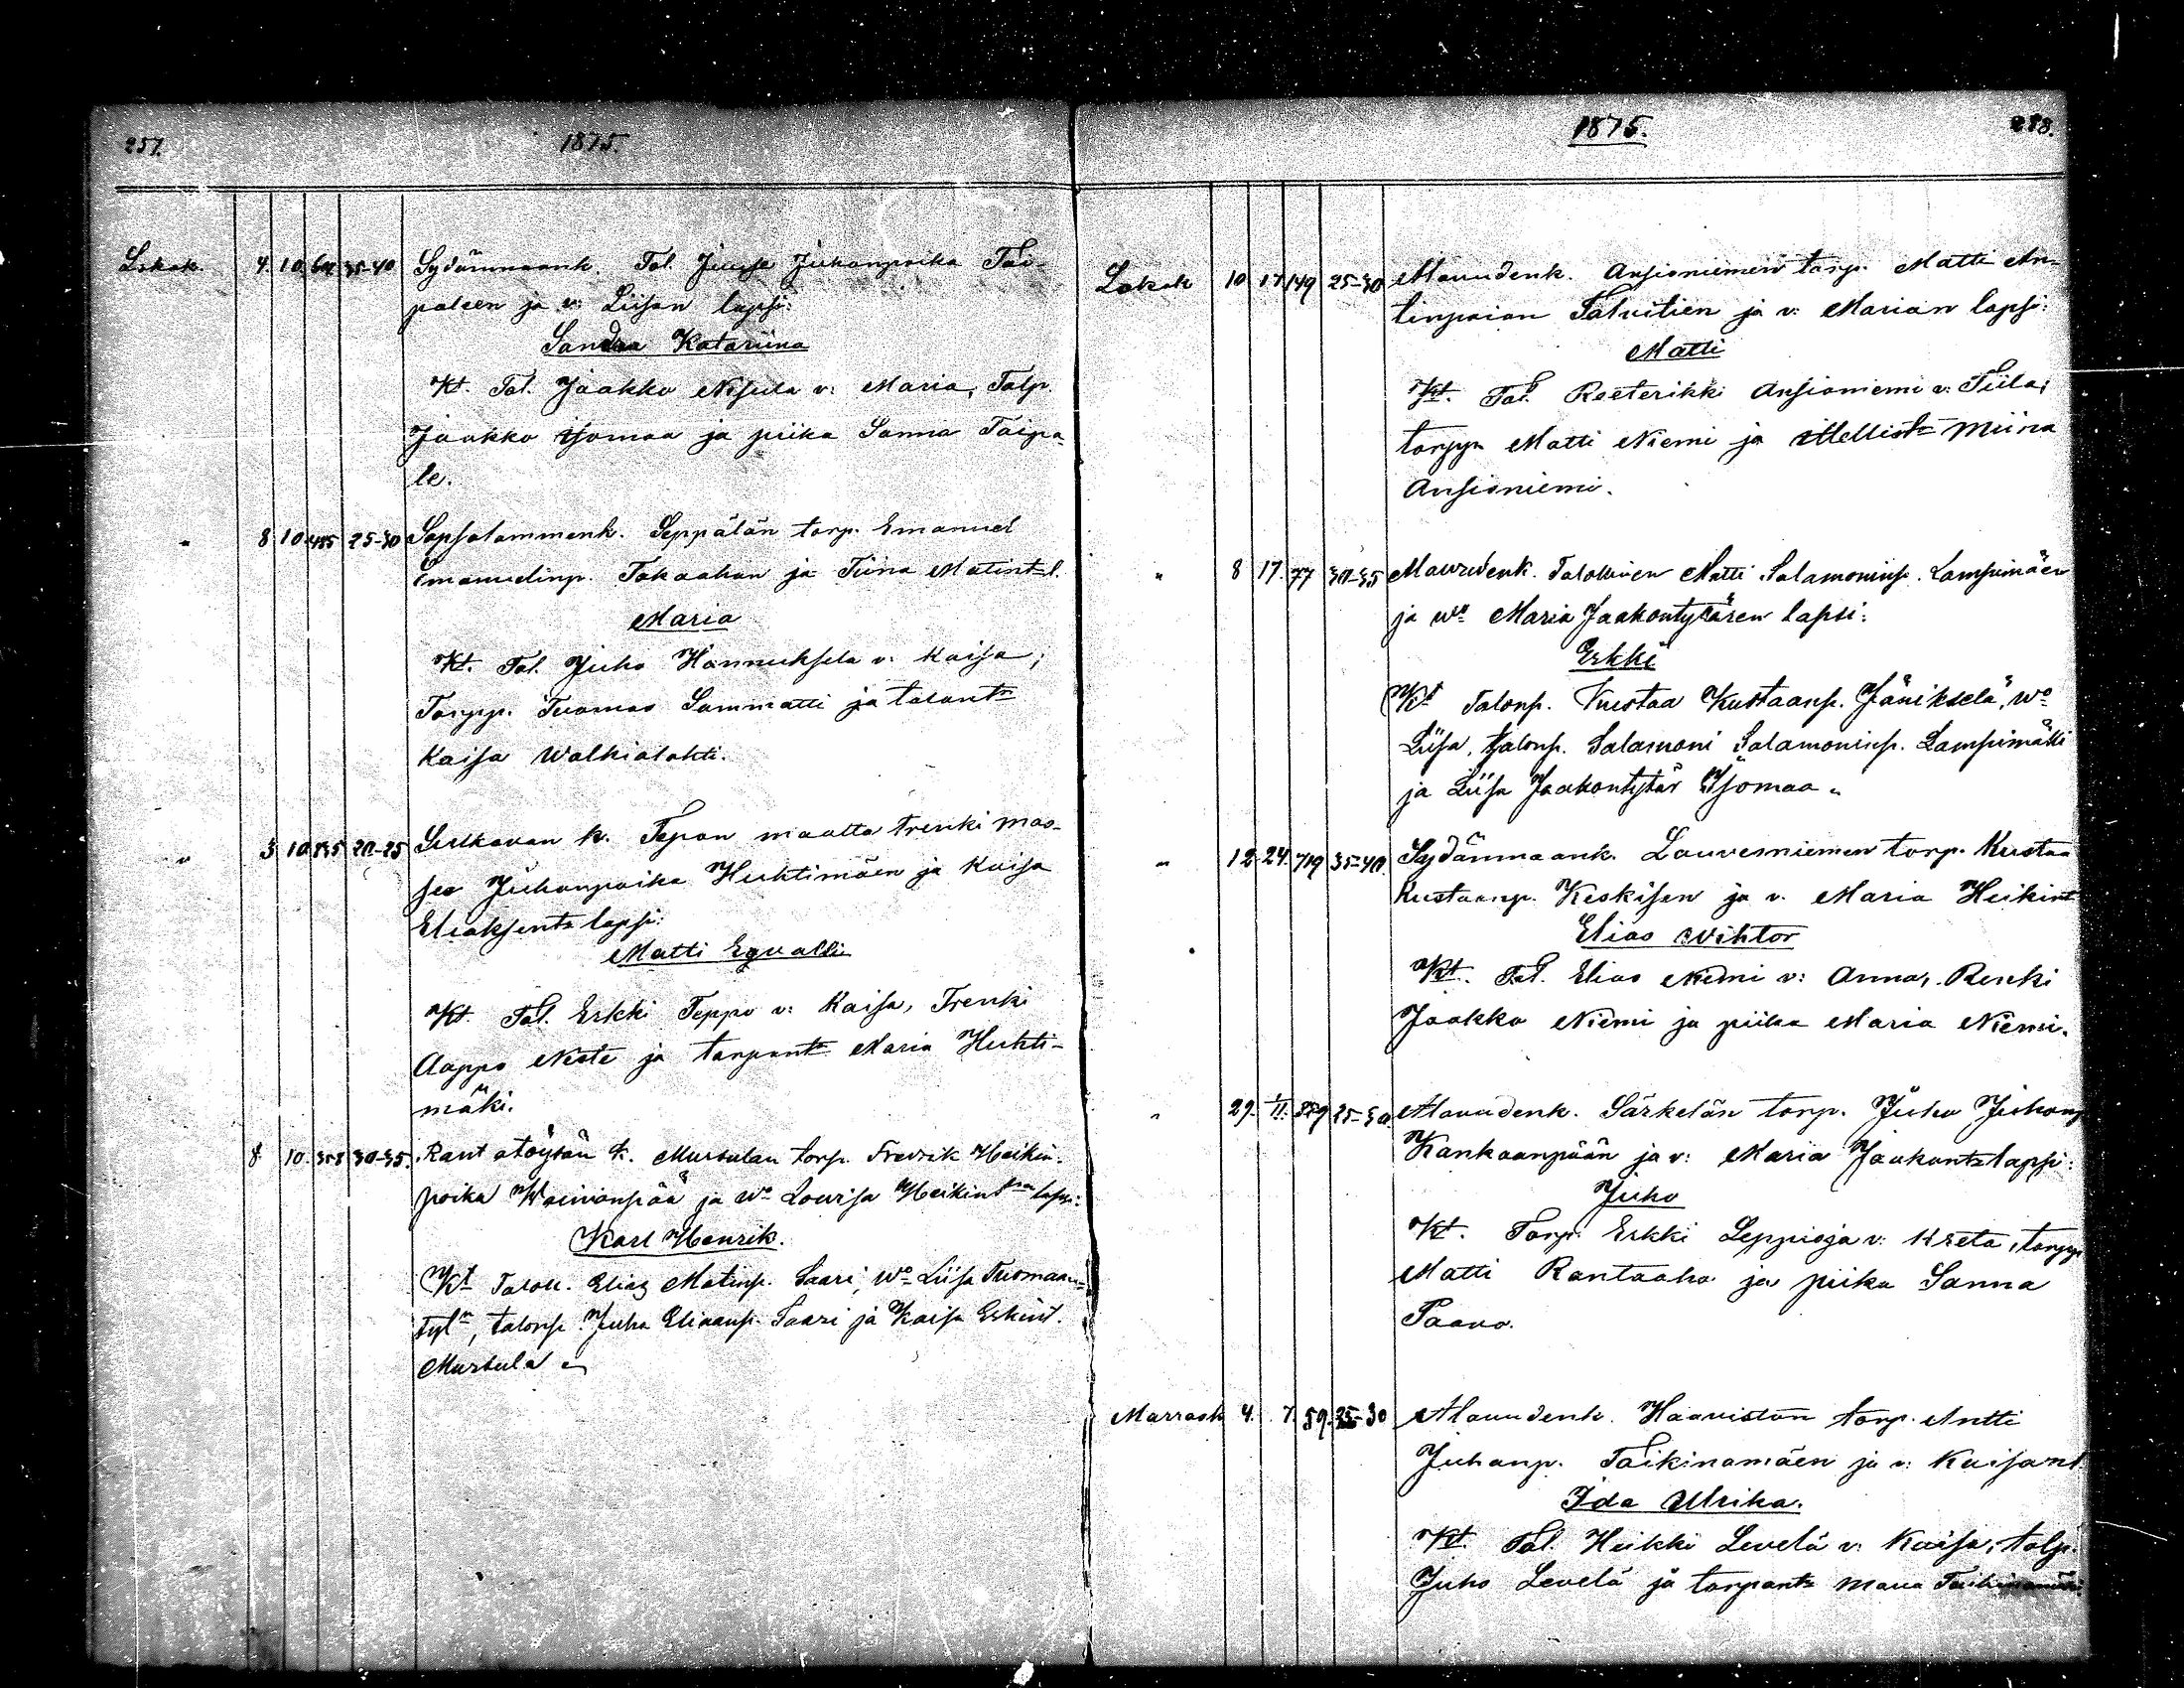 257. 1875.
Lokak. 4. 10. 64 35-40 Sydänmaank. Tal. Juuse Juhanpoika Tai-
paleen ja v: Liisan lapsi:
Sandra Katariina
Kt. Tal. Jaakko Nisula v: Maria, Talp.
Jaakko Isomaa ja piika Sanna Taipa-
le.
" 8 10 25-30 Sapsalammenk. Seppälän torp. Emanuel
Emanuelinp. Takaahan ja Tiina Matint l.
Maria
Kt. Tal. Juho Hannuksela v: Kaisa;
Torpp. Tuomas Sammatti ja talont
Kaisa Walkialahti.
" 3 10 20-25 Sulkavan k. Tepon maalta trenki Maa-
seo Juhanpoika Huhtimäen ja Kaisa
Eliaksent. lapsi:
Matti Equalli
Kt. Tal. Erkki Teppo v: Kaisa, Trenki
Aappo Neste ja torpant. Maria Huhti-
mäki.
8 10. 353 30-35. Rantatöysän k. Mursulan torp. Fredrik Heikin-
poika Wainionpää ja Wo Lowisa Heikint lapsi:
Karl Henrik.
Kt Taloll. Elias Matinp. Saari, Wo Liisa Tuomaan-
tytr, talonp. Juha Eliaanp. Saari ja Kaisa Erkint.
Mursula
1875. 258.
Lokak 10 17. 149 25-30 Alavudenk. Ansioniemen torp. Matti An-
tinpoian Talvitien ja v: Marian lapsi:
Matti
Kt. Tal. Reeterikki Ansioniemi v: Tiila;
torpp. Matti Niemi ja Mellist Miina
Ansioniemi.
" 8 17. 77 30-35 Alavudenk. Talollisen Matti Salamoninp. Lampimäen
ja wo Maria Jaakontyttären lapsi:
Erkki
Kt Talonp. Kustaa Kustaanp. Jänikselä, Wo
Liisa, talonp. Salamoni Salamoninp. Lampimäki
ja Liisa Jaakontytär Isomaa
" 12 24. 719 35-40 Sydänmaank. Louvesniemen torp. Kustaa
Kustaanp. Keskisen ja v. Maria Heikint
Elias Wihtor
Kt. Tal. Elias Niemi v: Anna, Renki
Jaakko Niemi ja piika Maria Niemi.
" 29. 1/11. 25-30 Alavudenk. Särkelän torp. Juho Juhanp
Kankaanpään ja v: Maria Jaakont. lapsi:
Juho
Kt. Torp. Erkki Leppioja v: Kreta, torpp.
Matti Rantaaho ja piika Sanna
Paavo.
Marrask 4. 7. 59. 25-30 Alavudenk. Haaviston torp. Antti
Juhanp. Taikinamäen ja v: Kaisan l
Ida Ulrika.
Kt. Tal. Heikki Levelä v: Kaisa, talp.
Juho Levelä ja torpant Maria Taikinamäki